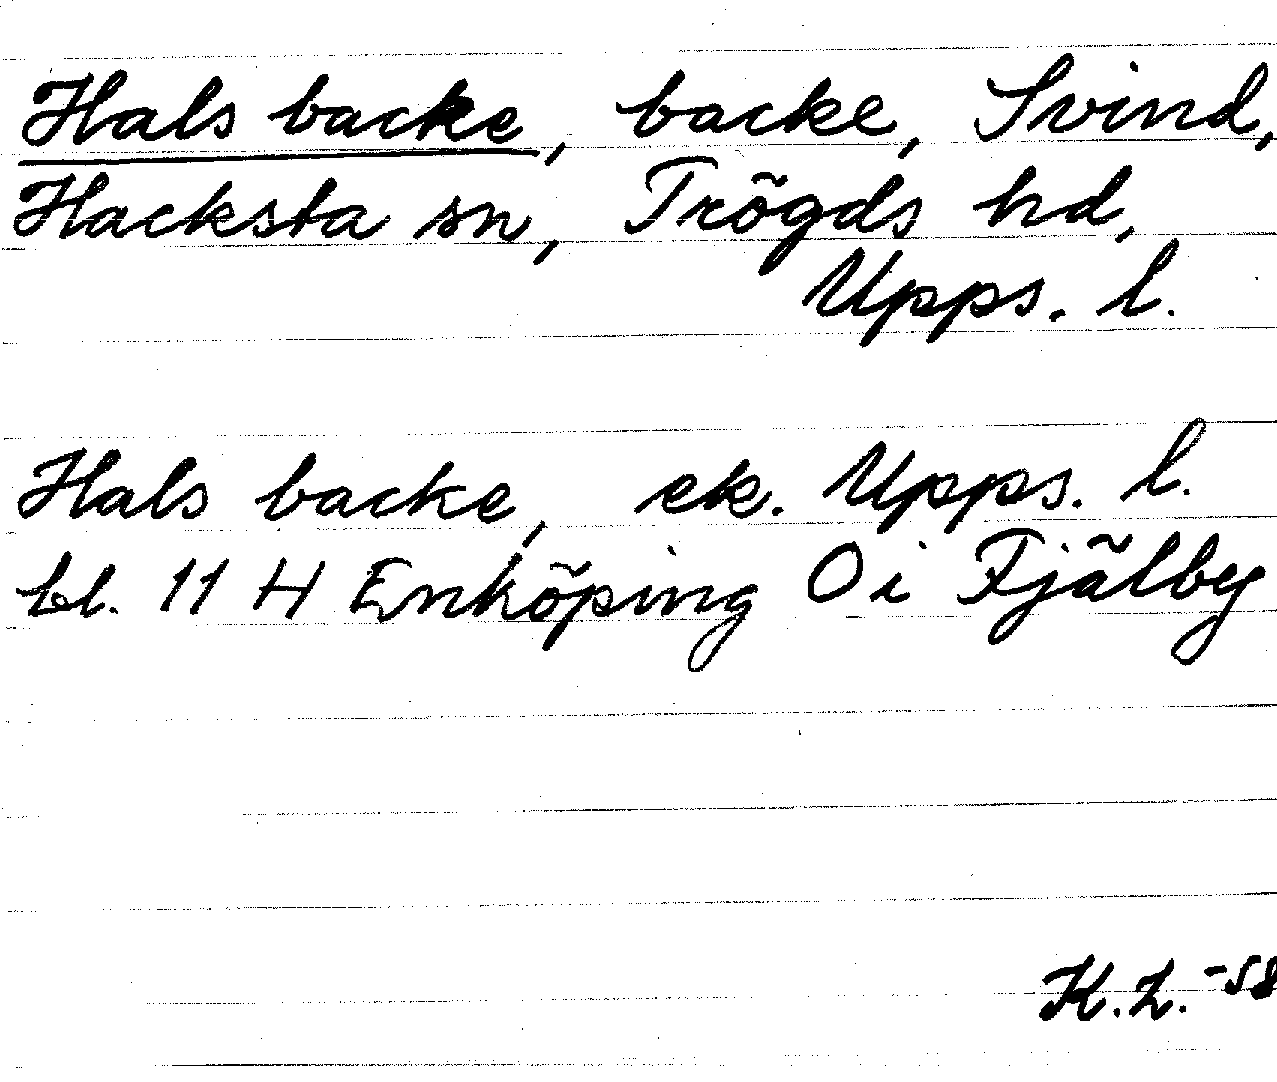 Hals backe, backe, Svind,
Hacksta sn, Trögds hd,
Upps. l.
Hals backe, ek. Upps. l.
bl. 11 H Enköping O i Fjälby
K.Z. -58